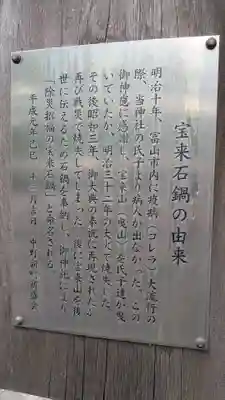 宝来石鍋の由来
明治十年、富山市内に疫病（コレラ）大流行の
際、当神社の氏子より病人が出なかった。この
御神徳に感謝し、宝来山（曳山）を氏子達が曳
いていたが、明治三十二年の大火で焼失した。
その後昭和三年、御大典の奉祝に再現されたが
再び戦災で焼失してしまった。後に宝来山を後
世に伝えるため石鍋を奉納し、御神託により
「除災招福の宝来石鍋」と命名される
平成元年己巳 十二月吉日 中野新町